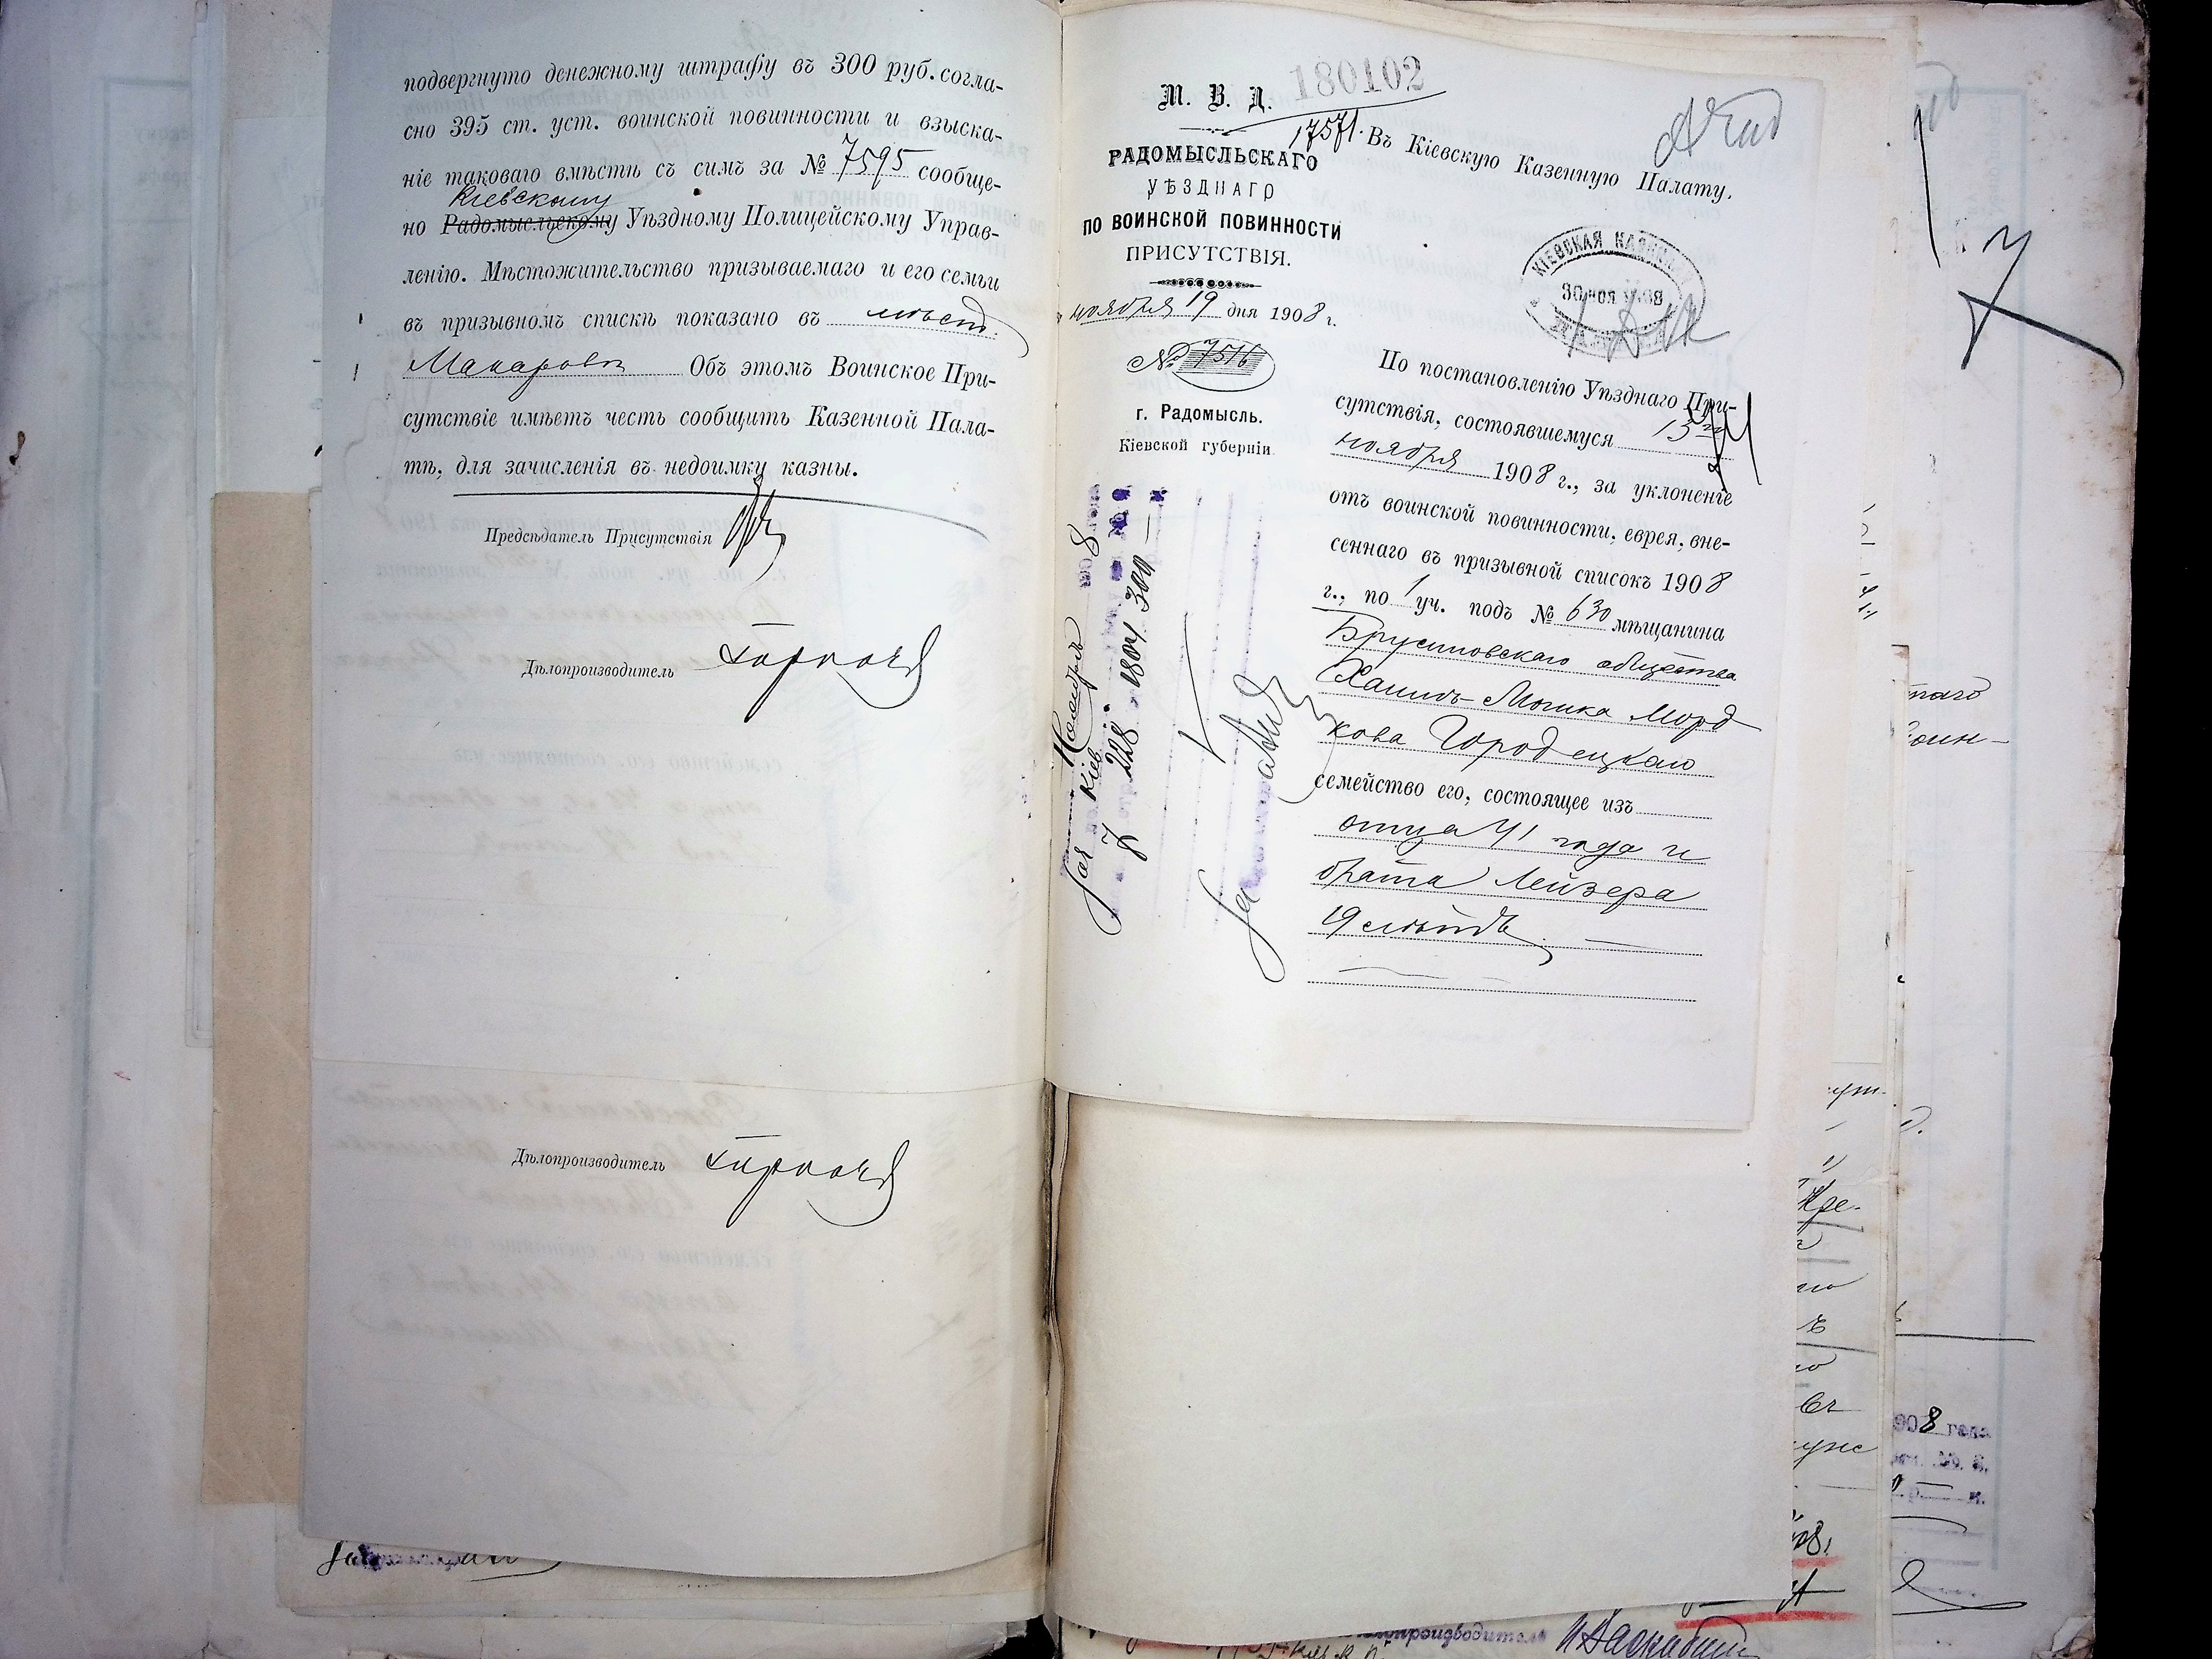 подвергнуто денежному штрафу въ 300 руб. согла-
сно 395 ст. уст. воинской повинности и взыска-
ніе таковаго вмѣстѣ съ симъ за № 7595 сообще-
Кіевскому
но Радомысльскому Уѣздному Полицейскому Управ-
ленію. Мѣстожительство призываемаго и его семьи
въ призывномъ спискѣ показано въ мѣст.
Макаровѣ Объ этомъ Воинское При-
сутствіе имѣетъ честь сообщить Казенной Пала-
тѣ, для зачисленія въ недоимку казны.
Предсѣдатель Присутствія
Дѣлопроизводитель
Дѣлопроизводитель
180102
М. В. Д.
17571.
РАДОМЫСЛЬСКАГО
УѢЗДНАГО
ПО ВОИНСКОЙ ПОВИННОСТИ
ПРИСУТСТВІЯ.
ноября 19 дня 1908 г.
№ 7516
г. Радомысль.
Кіевской губерніи
Въ Кіевскую Казенную Палату.
КІЕВСКАЯ КАЗЕН
30 НОЯ 1908
По постановленію Уѣзднаго При-
сутствія, состоявшемуся 15го
ноября 1908 г., за уклоненіе
отъ воинской повинности, еврея, вне-
сеннаго въ призывной списокъ 1908
г., по 1 уч. подъ № 630 мѣщанина
Брусиловскаго общества
Хаимъ-Мошка Морд
кова Городецкаго
семейство его, состоящее изъ
отца 41 года и
брата Лейзера
19 лѣтъ
Ноября 1908
Кіев
228 1804 300 —